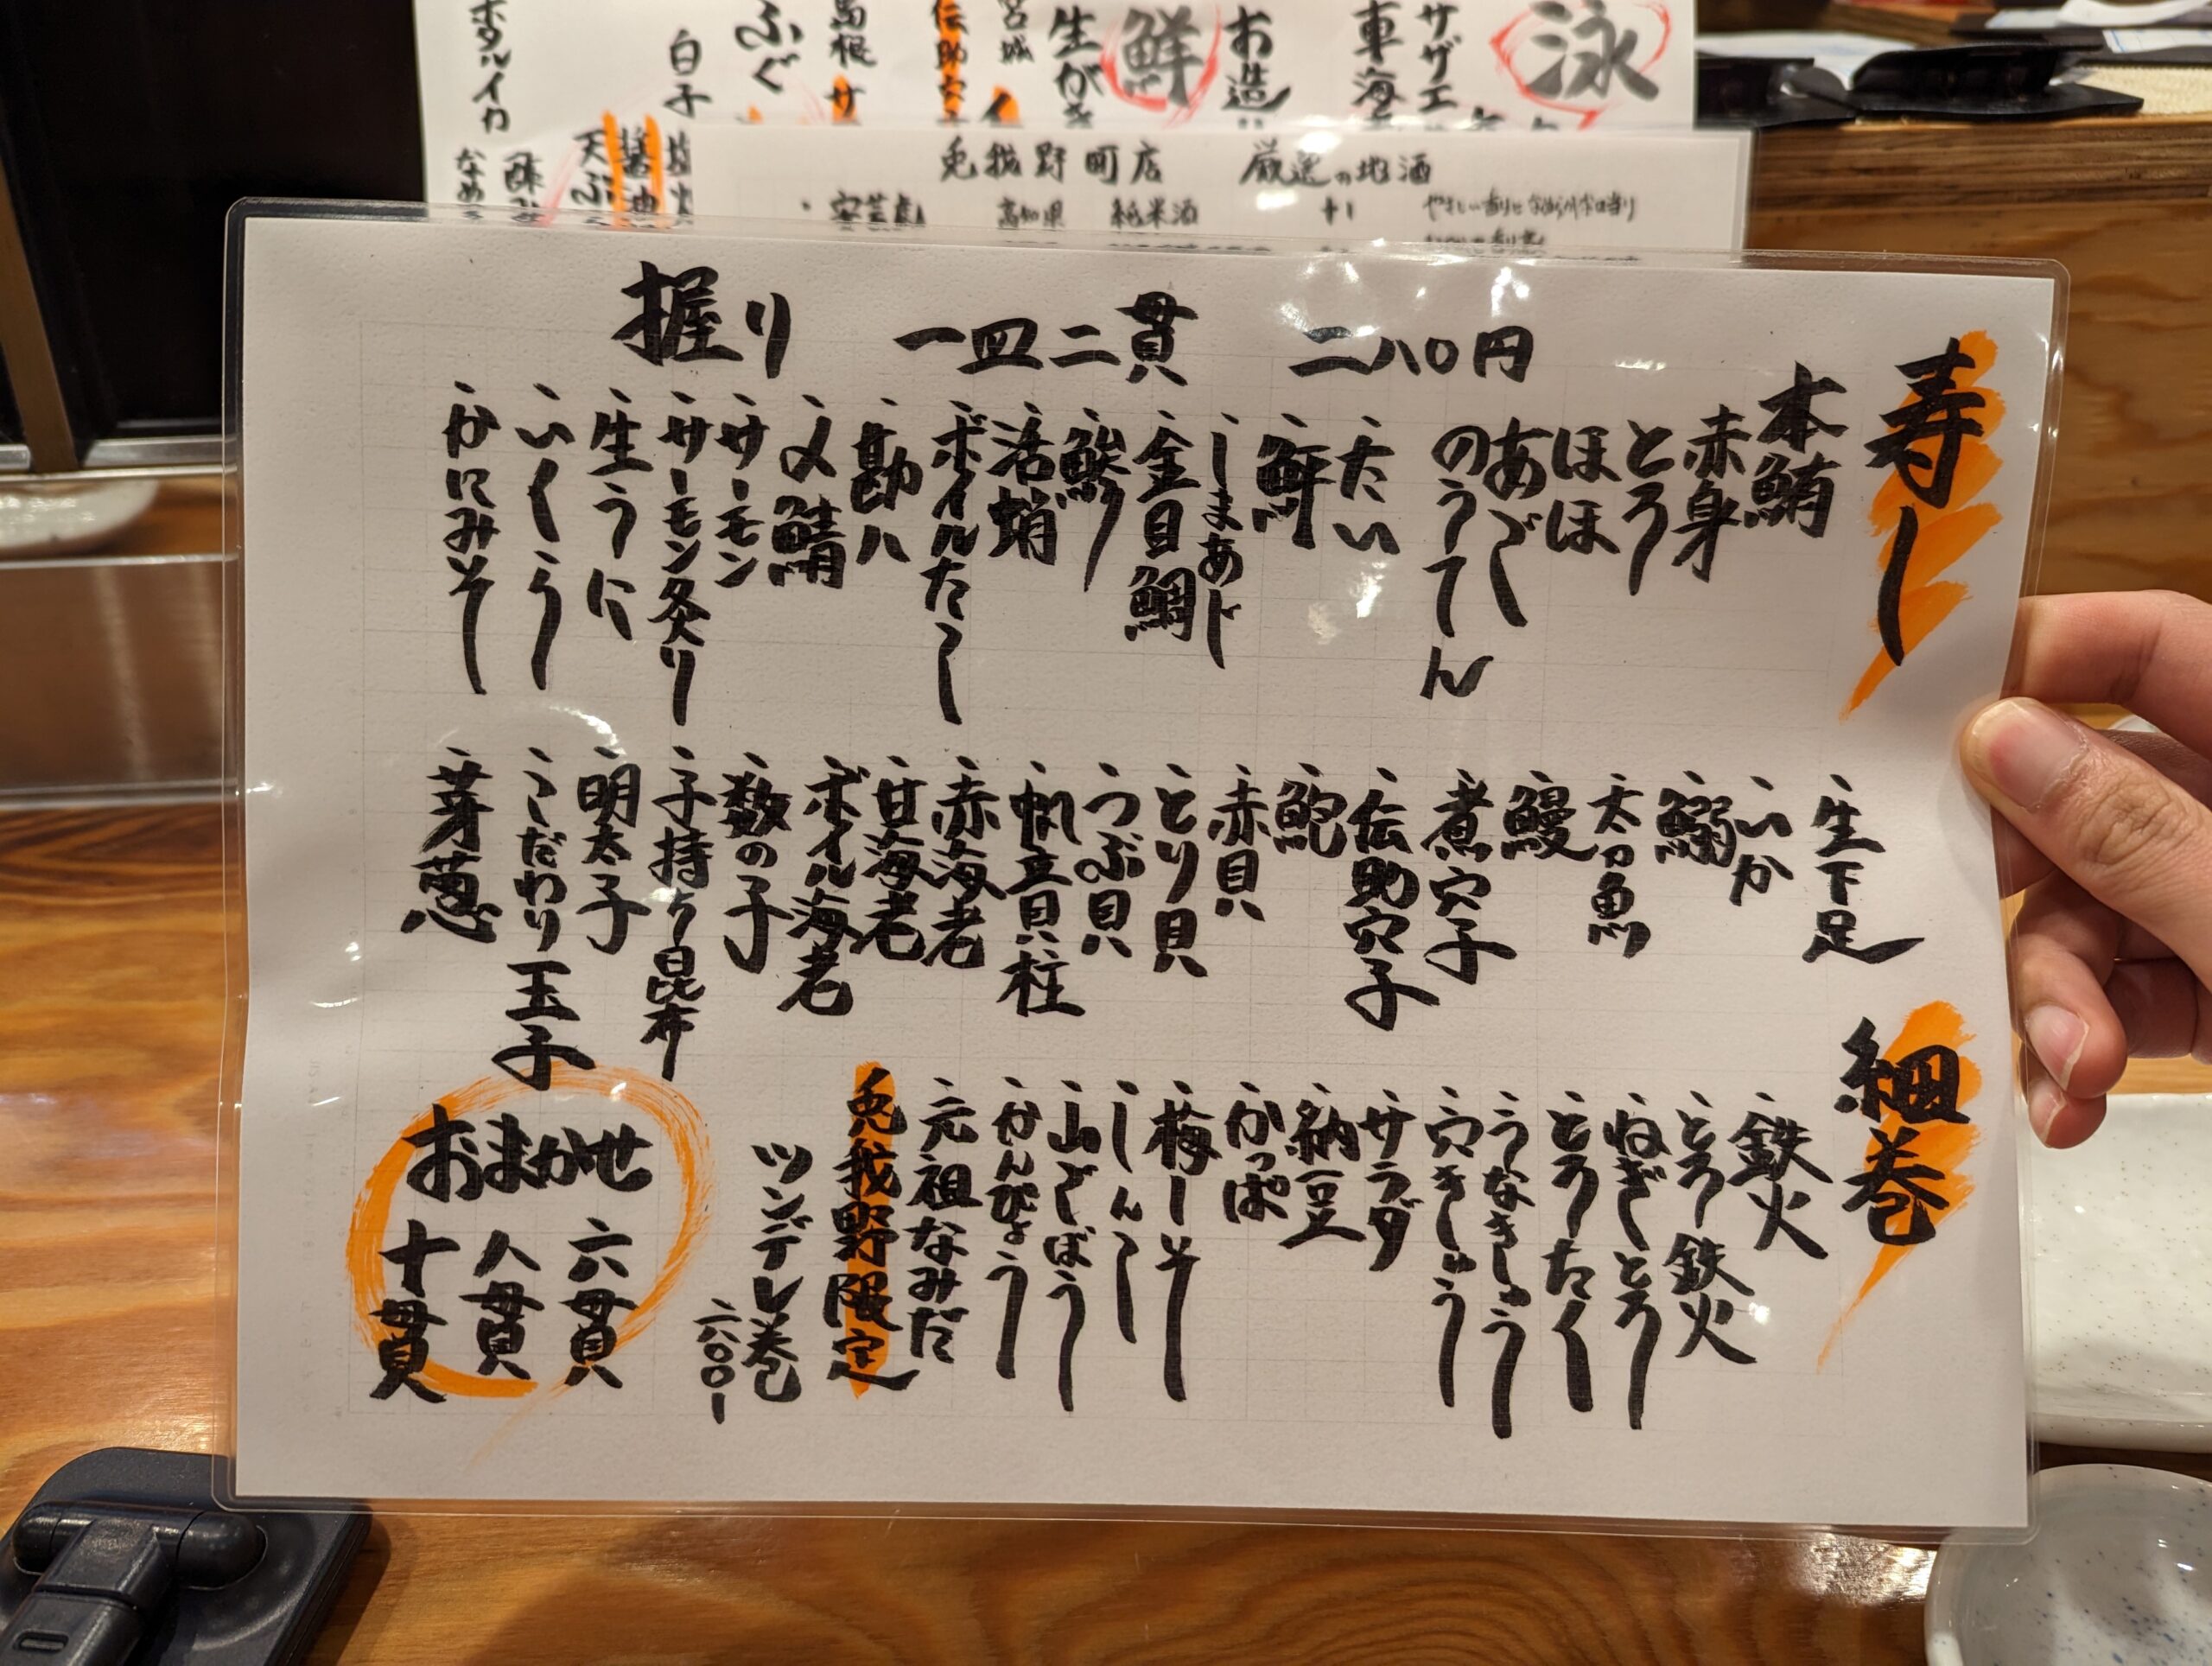 寿し
握り 一皿二貫 二八〇円
本鮪
赤身
とろ
ほほ
あご
のうてん
、たい
、鮮
、しまあじ
、金目鯛
、鯵
、活蛸
、ボイルたこ
、勘八
、〆鯖
、サーモン
、サーモン炙り
、生うに
、いくら
、かにみそ
、生下足
、いか
、鰯
、太刀魚
、鰻
、煮穴子
、伝助穴子
、鮑
、赤貝
、とり貝
、つぶ貝
、帆立貝柱
、赤海老
、甘海老
、ボイル海老
、数の子
、子持ち昆布
、明太子
、こだわり玉子
、芽葱
細巻
、鉄火
、とろ鉄火
、ねぎとろ
、とろたく
、うなきゅう
、穴きゅう
、サラダ
、納豆
、かっぱ
、梅しそ
、しんこ
、山ごぼう
、かんぴょう
、元祖なみだ
兎我野限定
ツンデレ巻
六〇〇ー
おまかせ
六貫
八貫
十貫
泳
サザエ
車海
お造り
鮮
生がき
宮城
伝助穴子
島根
ふぐ
白子
醤油
天ぷ
ホタルイカ
兎我野町店 厳選の地酒
高知県 純米酒 +1